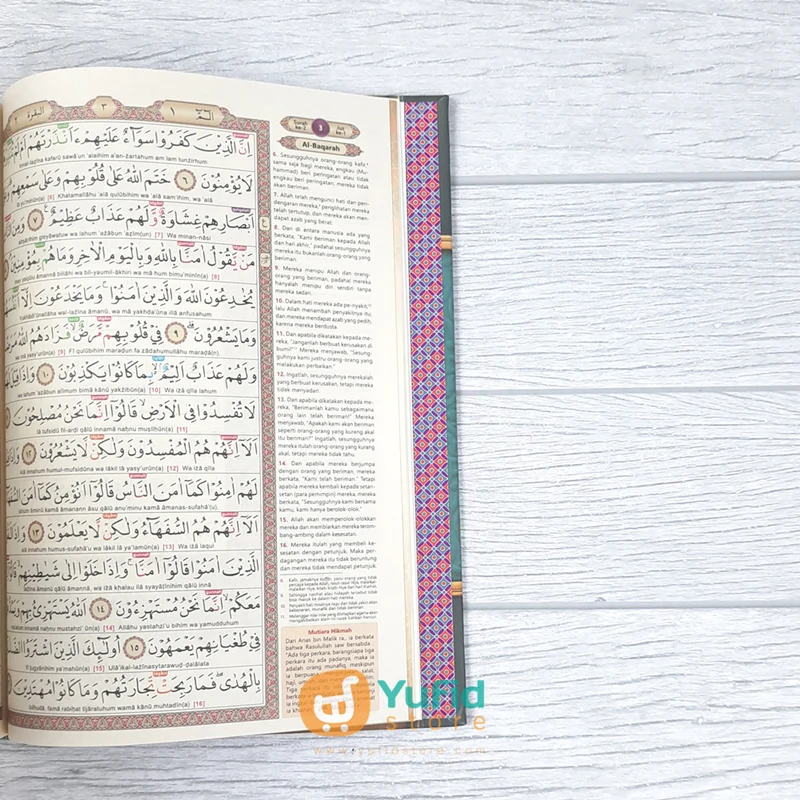 ٣
١
البقرة ٢
اِنَّ الَّذِيْنَ كَفَرُوْا سَوَاۤءٌ عَلَيْهِمْ ءَاَنْذَرْتَهُمْ اَمْ لَمْ
Innal-lażīna kafarū sawā'un 'alaihim a'an-żartahum am lam tunżirhum
لَا يُؤْمِنُوْنَ ٦ خَتَمَ اللّٰهُ عَلٰى قُلُوْبِهِمْ وَعَلٰى سَمْعِهِمْ
lā yu'minūn(a) [6] Khatamallāhu 'alā qulūbihim wa 'alā sam'ihim, wa 'alā
اَبْصَارِهِمْ غِشَاوَةٌ وَّلَهُمْ عَذَابٌ عَظِيْمٌ ٧ وَمِنَ
abṣārihim gisyāwatuw wa lahum 'ażābun 'aẓīm(un) [7] Wa minan-nāsi
مَنْ يَّقُوْلُ اٰمَنَّا بِاللّٰهِ وَبِالْيَوْمِ الْاٰخِرِ وَمَا هُمْ بِمُؤْمِنِيْنَ
may yaqūlu āmannā billāhi wa bil-yaumil-ākhiri wa mā hum bimu'minīn(a) [8]
يُخٰدِعُوْنَ اللّٰهَ وَالَّذِيْنَ اٰمَنُوْا وَمَا يَخْدَعُوْنَ اِلَّآ
Yukhādi'ūnallāha wal-lażīna āmanū, wa mā yakhda'ūna illā anfusahum
وَمَا يَشْعُرُوْنَ ٩ فِيْ قُلُوْبِهِمْ مَّرَضٌ فَزَادَهُمُ اللّٰهُ مَرَضًا
wa mā yasy'urūn(a) [9] Fī qulūbihim maraḍun fa zādahumullāhu maraḍā(n),
وَلَهُمْ عَذَابٌ اَلِيْمٌ بِمَا كَانُوْا يَكْذِبُوْنَ ١٠ وَاِذَا قِيْلَ
wa lahum 'ażābun alīmum bimā kānū yakżibūn(a) [10] Wa iżā qīla lahum
لَا تُفْسِدُوْا فِى الْاَرْضِ قَالُوْٓا اِنَّمَا نَحْنُ مُصْلِحُوْنَ
lā tufsidū fil-arḍi, qālū innamā naḥnu muṣliḥūn(a) [11]
اَلَآ اِنَّهُمْ هُمُ الْمُفْسِدُوْنَ وَلٰكِنْ لَّا يَشْعُرُوْنَ ١٢ وَاِذَا
alā innahum humul-mufsidūna wa lākil lā yasy'urūn(a) [12] Wa iżā qīla
لَهُمْ اٰمِنُوْا كَمَآ اٰمَنَ النَّاسُ قَالُوْٓا اَنُؤْمِنُ كَمَآ اٰمَنَ السُّفَهَاۤءُ
lahum āminū kamā āmanan nāsu qālū anu'minu kamā āmanas-sufahā'(u),
اَلَآ اِنَّهُمْ هُمُ السُّفَهَاۤءُ وَلٰكِنْ لَّا يَعْلَمُوْنَ ١٣ وَاِذَا
alā innahum humus-sufahā'u wa lākil lā ya'lamūn(a) [13] Wa iżā laqul
الَّذِيْنَ اٰمَنُوْا قَالُوْٓا اٰمَنَّا وَاِذَا خَلَوْا اِلٰى شَيٰطِيْنِهِمْ قَالُوْٓا
lażīna āmanū qālū āmannā, wa iżā khalau ilā syayāṭīnihim qālū innā
مَعَكُمْ اِنَّمَا نَحْنُ مُسْتَهْزِءُوْنَ ١٤ اَللّٰهُ يَسْتَهْزِئُ بِهِمْ
innamā naḥnu mustahzi'ūn(a) [14] Allāhu yastahzi'u bihim wa yamudduhum
فِيْ طُغْيَانِهِمْ يَعْمَهُوْنَ ١٥ اُولٰۤىِٕكَ الَّذِيْنَ اشْتَرَوُا
fī ṭugyānihim ya'mahūn(a) [15] Ulā'ikal-lażīnasytarawuḍ-ḍalālata
بِالْهُدٰى فَمَا رَبِحَتْ تِّجَارَتُهُمْ وَمَا كَانُوْا مُهْتَدِيْنَ ١٦
bilhudā, famā rabiḥat tijāratuhum wamā kānū muhtadīn(a) [16]
Surah ke-2 3 Juz ke-1
Al-Baqarah
6. Sesungguhnya orang-orang kafir,
sama saja bagi mereka, engkau (Mu-
hammad) beri peringatan atau tidak
engkau beri peringatan, mereka tidak
akan beriman.
7. Allah telah mengunci hati dan pen-
dengaran mereka, penglihatan mereka
telah tertutup, dan mereka akan men-
dapat azab yang berat.
8. Dan di antara manusia ada yang
berkata, "Kami beriman kepada Allah
dan hari akhir," padahal sesungguhnya
mereka itu bukanlah orang-orang yang
beriman.
9. Mereka menipu Allah dan orang-
orang yang beriman, padahal mereka
hanyalah menipu diri sendiri tanpa
mereka sadari.
10. Dalam hati mereka ada penyakit,
lalu Allah menambah penyakitnya itu;
dan mereka mendapat azab yang pedih,
karena mereka berdusta.
11. Dan apabila dikatakan kepada me-
reka, "Janganlah berbuat kerusakan di
bumi!" Mereka menjawab, "Sesung-
guhnya kami justru orang-orang yang
melakukan perbaikan."
12. Ingatlah, sesungguhnya merekalah
yang berbuat kerusakan, tetapi mereka
tidak menyadari.
13. Dan apabila dikatakan kepada me-
reka, "Berimanlah kamu sebagaimana
orang lain telah beriman!" Mereka
menjawab, "Apakah kami akan beriman
seperti orang-orang yang kurang akal
itu beriman?" Ingatlah, sesungguhnya
mereka itulah orang-orang yang kurang
akal, tetapi mereka tidak tahu.
14. Dan apabila mereka berjumpa
dengan orang yang beriman, mereka
berkata, "Kami telah beriman." Tetapi
apabila mereka kembali kepada setan-
setan (para pemimpin) mereka, mereka
berkata, "Sesungguhnya kami bersama
kamu, kami hanya berolok-olok."
15. Allah akan memperolok-olokkan
mereka dan membiarkan mereka terom-
bang-ambing dalam kesesatan.
16. Mereka itulah yang membeli ke-
sesatan dengan petunjuk. Maka per-
dagangan mereka itu tidak beruntung
dan mereka tidak mendapat petunjuk.
Mutiara Hikmah
Dari Anas bin Malik ra., ia berkata
bahwa Rasulullah saw bersabda:
"Ada tiga perkara, barangsiapa tiga
perkara itu ada padanya, maka ia
adalah orang munafiq, meskipun
Yufid
store
www.yufidstore.com